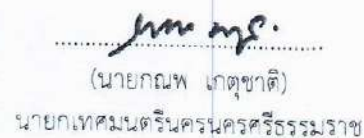 (นายกณพ เกตุชาติ)
นายกเทศมนตรีนครนครศรีธรรมราช